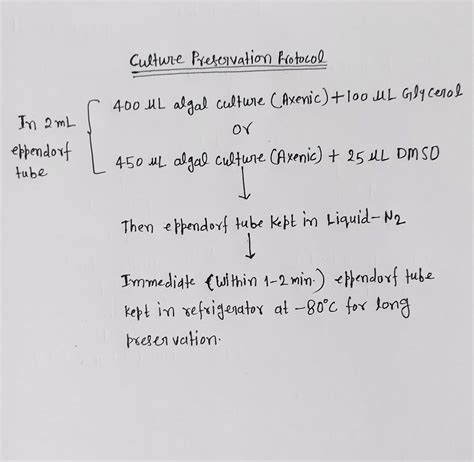 Culture Preservation Protocol
In 2mL eppendorf tube
400 µL algal culture (Axenic) + 100 µL Glycerol
or
450 µL algal culture (Axenic) + 25 µL DMSO
Then eppendorf tube kept in Liquid-N2
Immediate (within 1-2 min.) eppendorf tube
kept in refrigerator at -80°C for long
preservation.